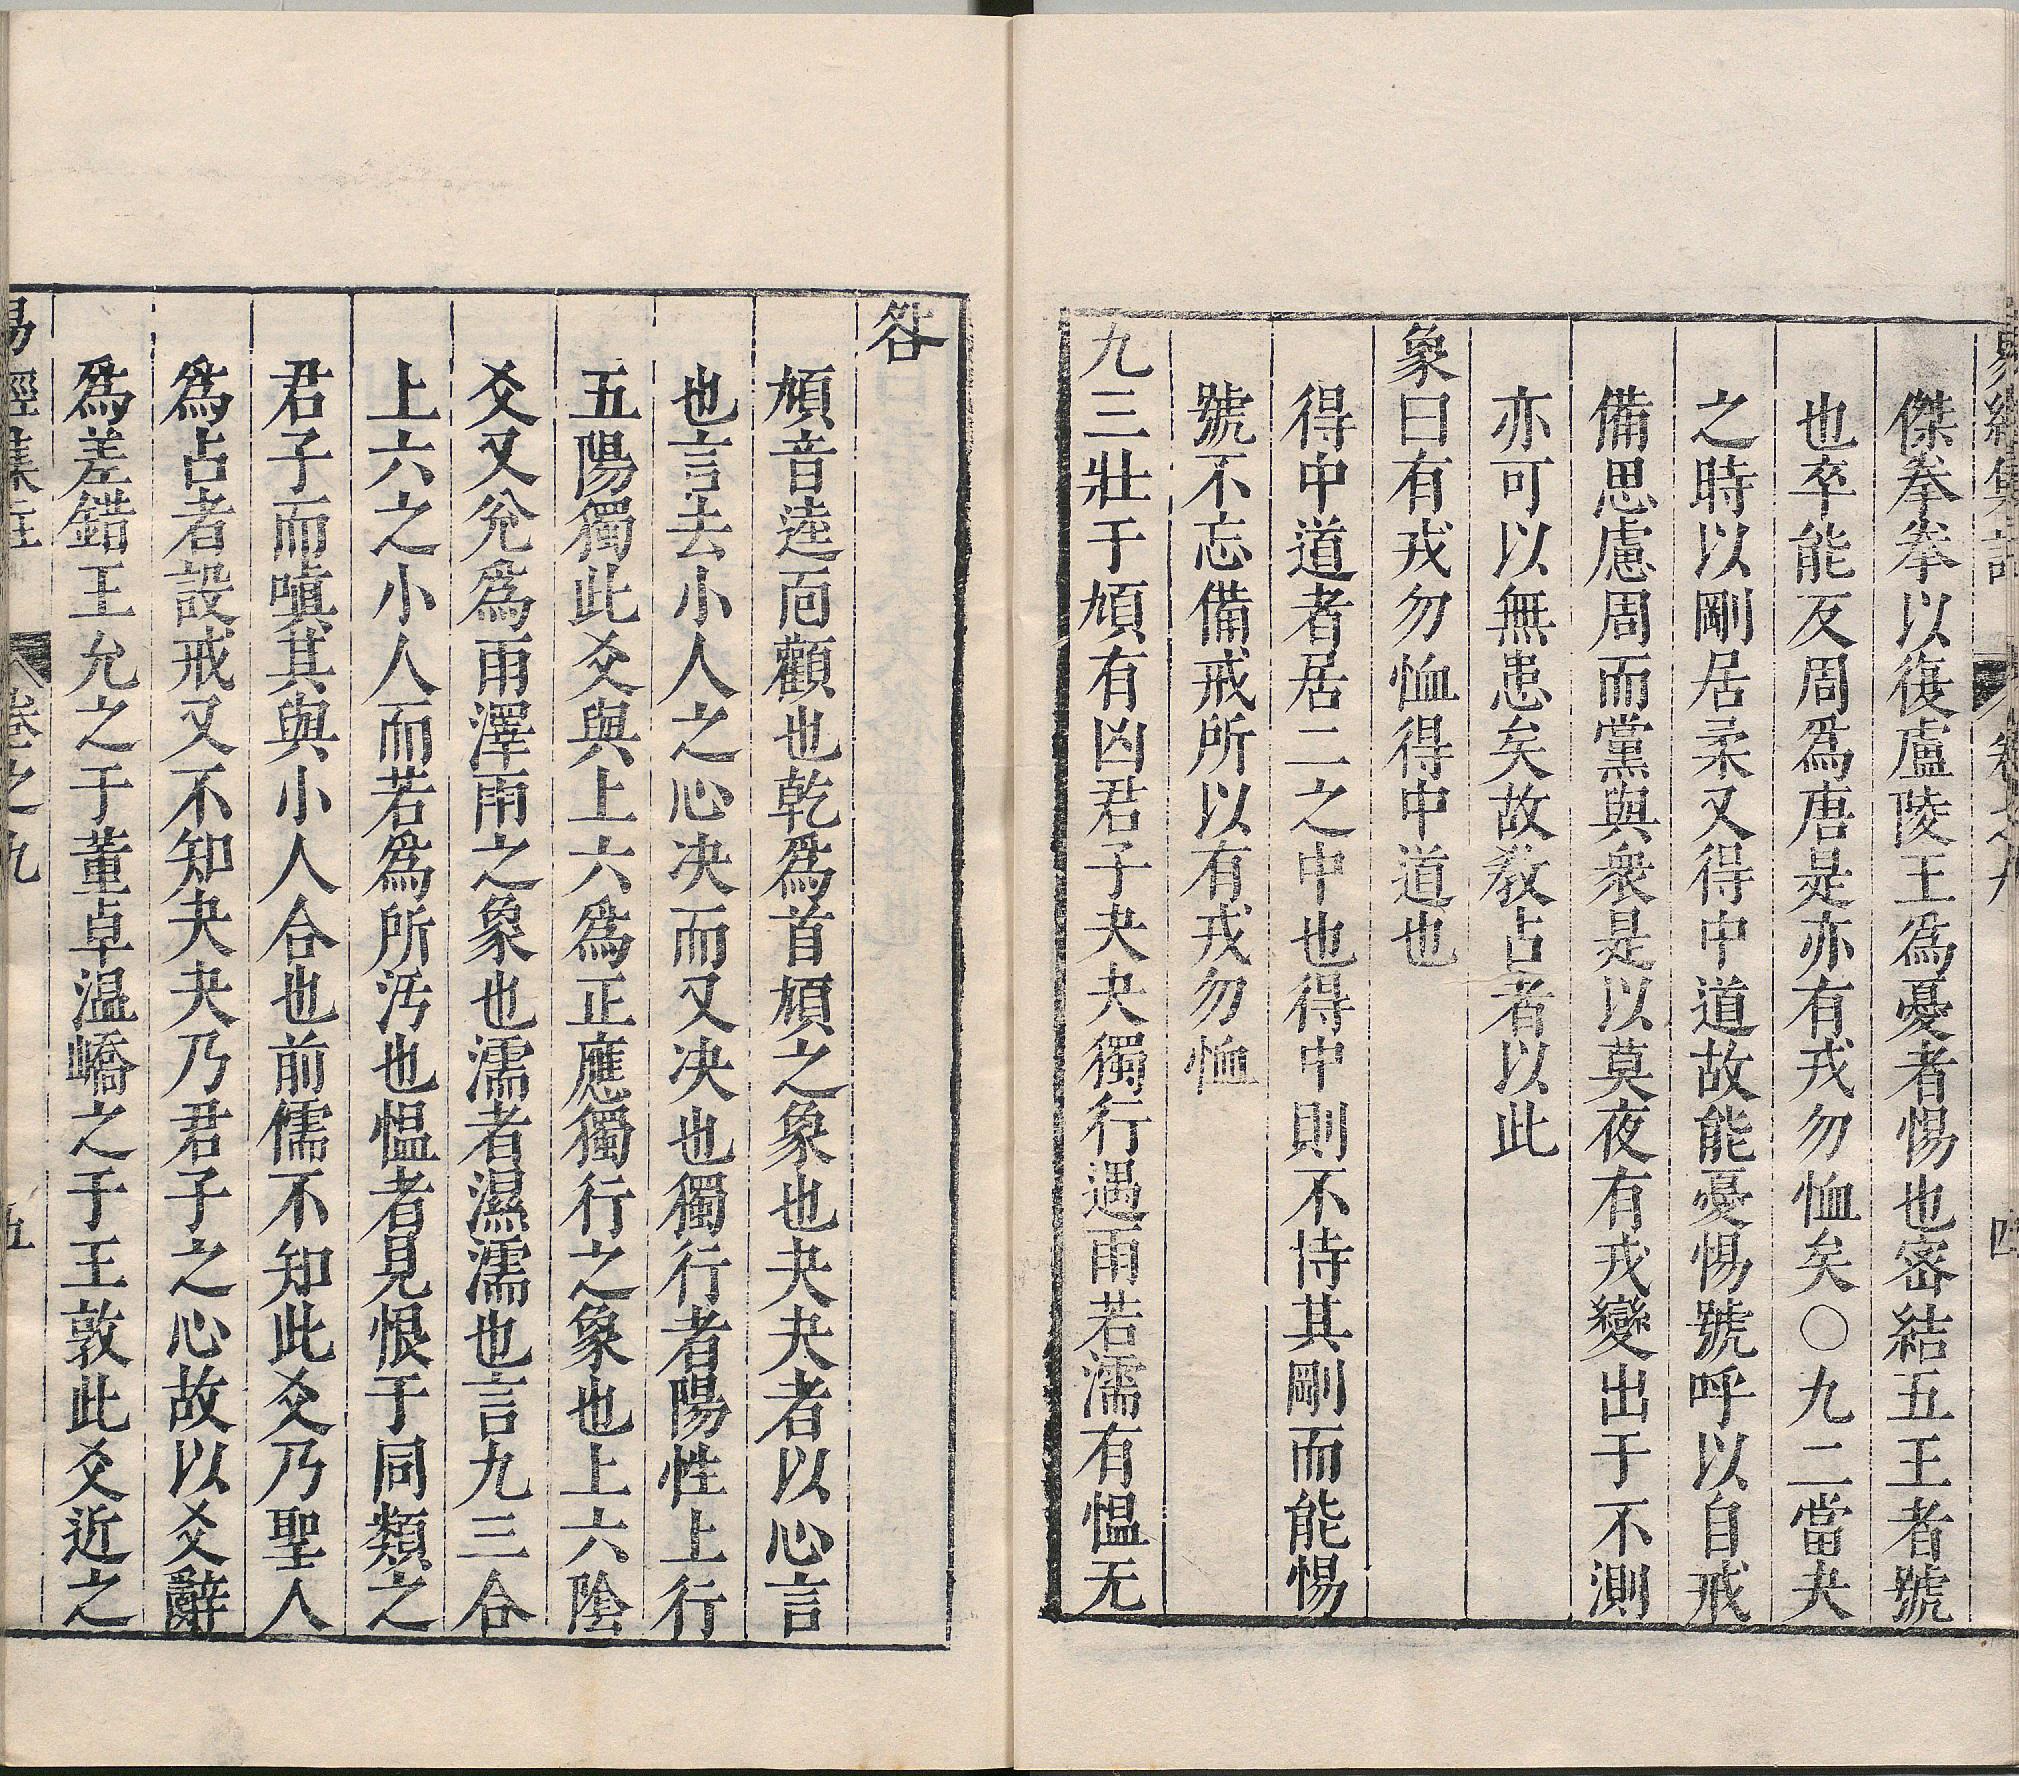 易經集註 卷之九 四
傑拳拳以復盧陵王爲憂者惕也密結五王者號
也卒能反周爲唐是亦有戎勿恤矣○九二當夬
之時以剛居柔又得中道故能憂惕號呼以自戒
備思慮周而黨與衆是以莫夜有戎變出于不測
亦可以無患矣故教占者以此
象曰有戎勿恤得中道也
得中道者居二之中也得中則不恃其剛而能惕
號不忘備戒所以有戎勿恤
九三壯于頄有凶君子夬夬獨行遇雨若濡有慍无
咎
頄音逵面顴也乾爲首頄之象也夬夬者以心言
也言去小人之心决而又决也獨行者陽性上行
五陽獨此爻與上六爲正應獨行之象也上六陰
爻又兊爲雨澤雨之象也濡者濕濡也言九三合
上六之小人而若爲所汚也慍者見恨于同類之
君子而嗔其與小人合也前儒不知此爻乃聖人
爲占者設戒又不知夬夬乃君子之心故以爻辭
爲差錯王允之于董卓溫嶠之于王敦此爻近之
易經集註 卷之九 五